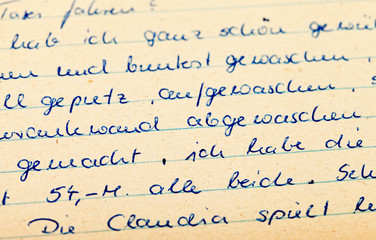 fahren?
hab ich ganz schön
nen und buntest gewaschen,
ll geputz, aufgewaschen, s
wand abgewaschen
gemacht, ich habe die
t 54,-M. alle beide. Sch
Die Claudia spielt